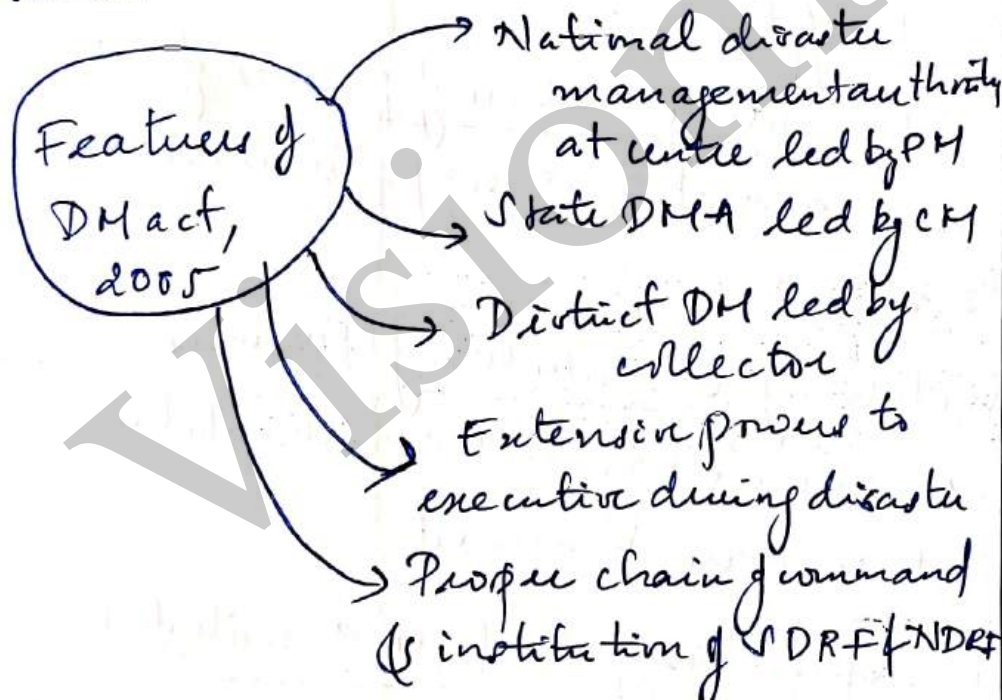 Features of
DM act,
2005
National disaster
management authority
at centre led by PM
State DMA led by CM
District DM led by
collector
Extensive powers to
executive during disaster
Proper chain of command
& institution of SDRF & NDRF
Vision